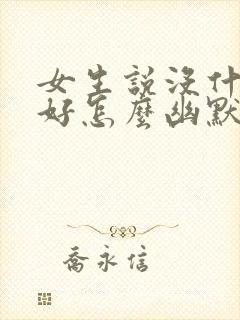 女生說沒什
好怎麼幽默
喬永信